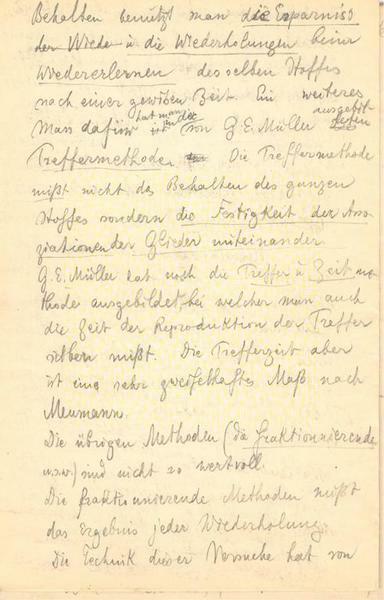 Behalten benützt man die Ersparniss
der Wiede u die Wiederholungen beim
Wiedererlernen desselben Stoffes
nach einer gewißen Zeit. Ein weiteres
hat man in der ausgebil
Man dafür ist von G.E. Müller
Treffermethode Die Treffermethode
mißt nicht das Behalten des ganzen
Stoffes sondern die Festigkeit der Asso
ziationen der Glieder miteinander
G.E. Müller hat noch die Treffer u Zeit me
thode ausgebildet, bei welcher man auch
die Zeit der Reproduktion der Treffer
selben mißt. Die Trefferzeit aber
ist eine sehr zweifelhaftes Maß nach
Meumann.
Die übrigen Methoden (die fraktionierende
u.s.w.) sind nicht so wertvoll.
Die fraktionierende Methoden mißt
das Ergebnis jeder Wiederholung.
Die Technik dieser Versuche hat von